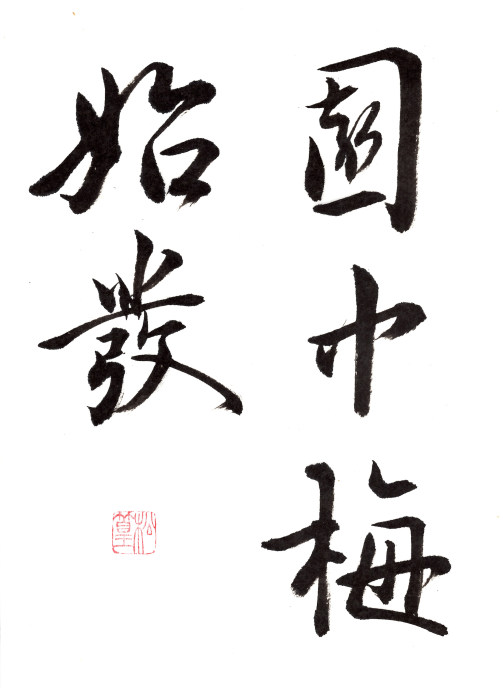 園中梅
始發